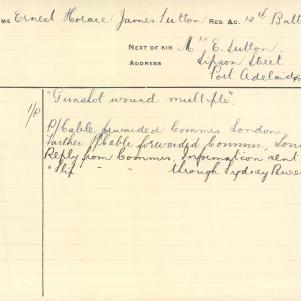 ME Ernest Horace James Sutton REG. &C. 12th Batt
NEXT OF KIN Mrs E. Sutton.
ADDRESS Lipson Street
Port Adelaide
"Gunshot wound multiple".
P/Cable forwarded Commis London
Further P/Cable forwarded Commis, Lon
Reply from Commis. Information sent
" Slip " " through Sydney Bure